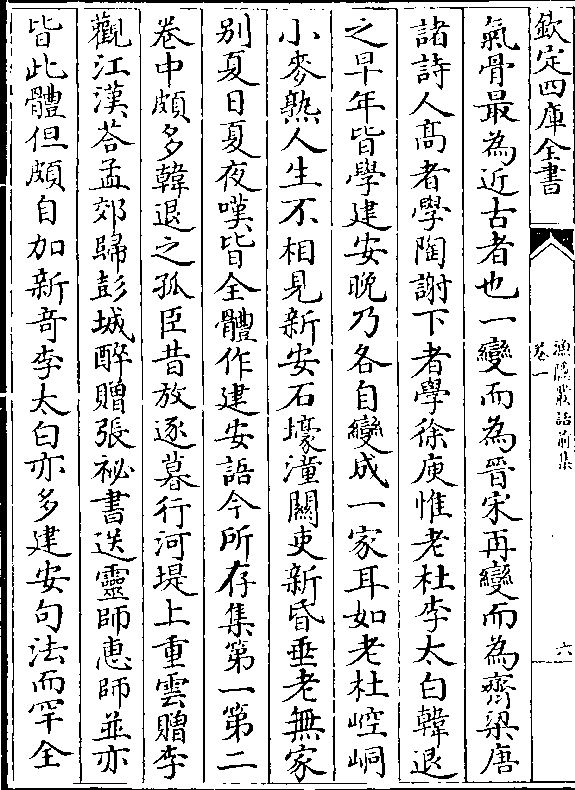 欽定四庫全書
漁隱叢話前集
卷一
六
氣骨最為近古者也一變而為晉宋再變而為齊梁唐
諸詩人髙者學陶謝下者學徐庾惟老杜李太白韓退
之早年皆學建安晚乃各自變成一家耳如老杜崆峒
小麥熟人生不相見新安石壕潼關吏新昏垂老無家
别夏日夏夜嘆皆全體作建安語今所存集第一第二
卷中頗多韓退之孤臣昔放逐暮行河堤上重雲贈李
觀江漢荅孟郊歸彭城醉贈張祕書送靈師惠師並亦
皆此體但頗自加新奇李太白亦多建安句法而罕全